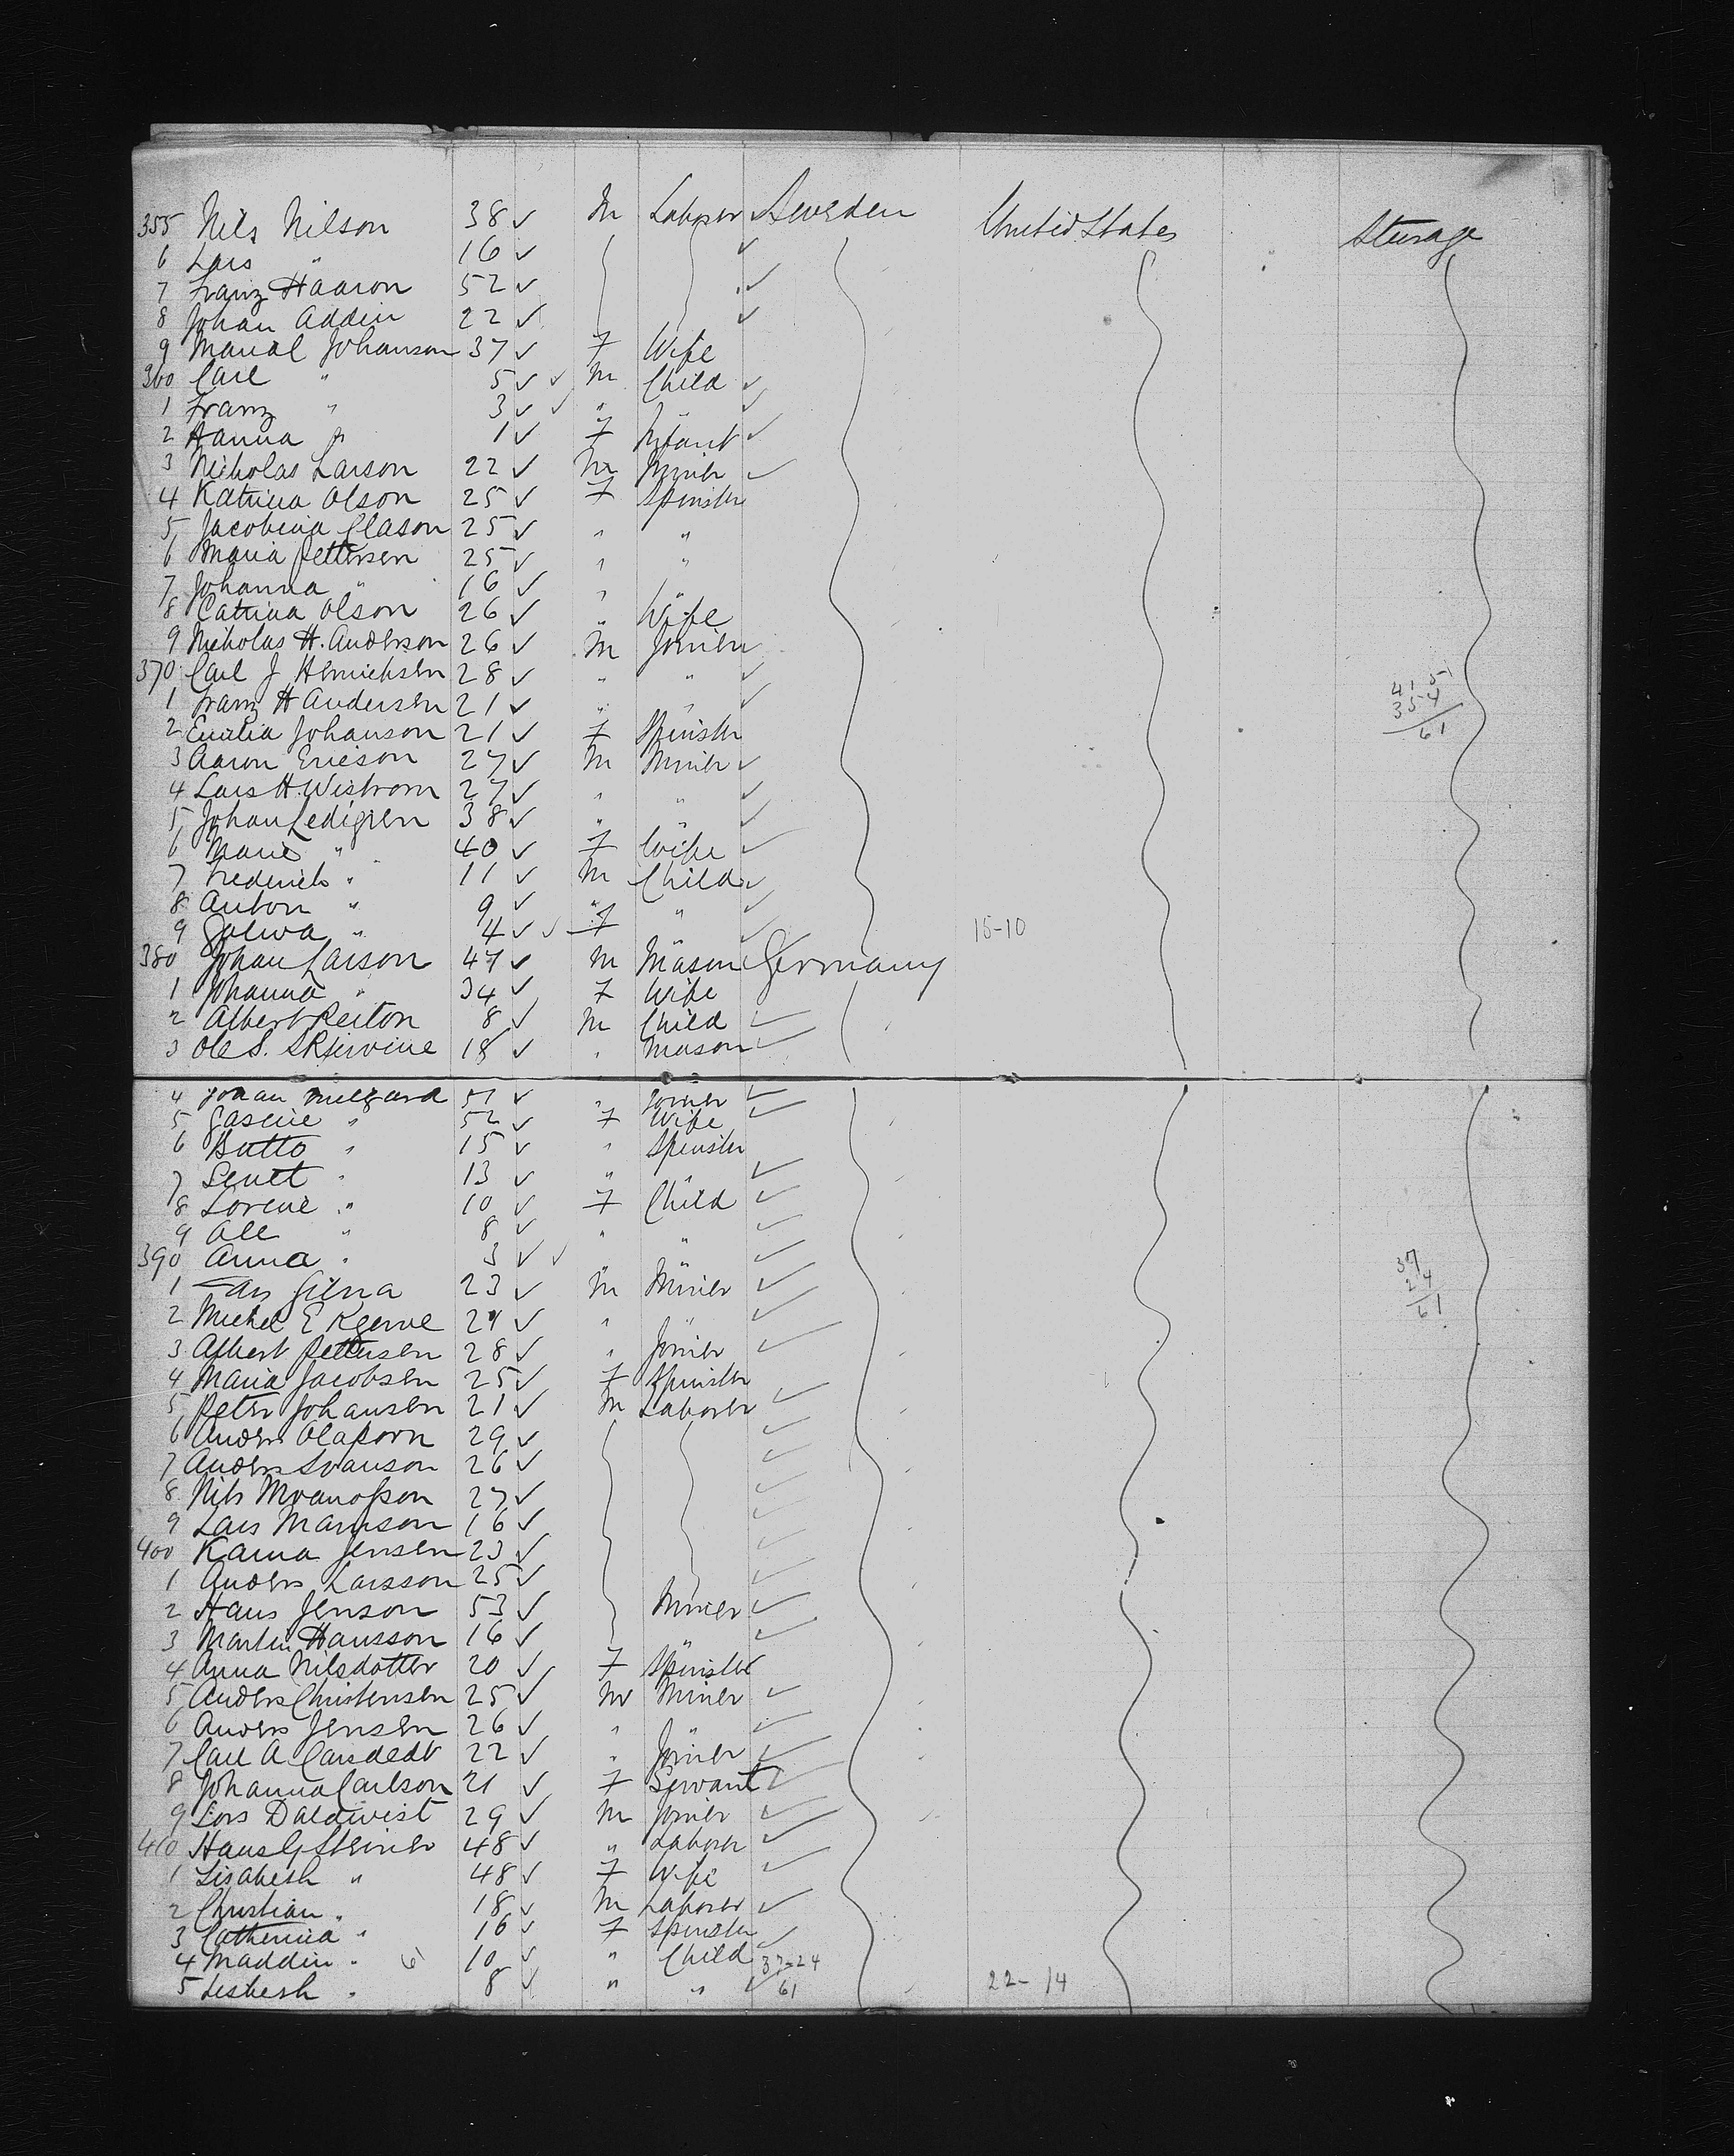 355 Nils Nilson 38 ✓ M Laborer Sweden United States Sterage
6 Lars " 16 ✓ ✓
7 Franz Haaron 52 ✓ ✓
8 Johan Addin 22 ✓ ✓
9 Johanson 37 ✓ F Wife
360 Carl " 5 ✓ ✓ M Child ✓
1 Franz " 3 ✓ ✓ " " ✓
2 Hanna " 1 ✓ F Infant ✓
3 Nicholas Larson 22 ✓ M Miner ✓
4 Katrina Olson 25 ✓ F Spinster
5 Jacobina Clason 25 ✓ " "
6 Maria Pettersen 25 ✓ " "
7 Johanna " 16 ✓ " "
8 Catrina Olson 26 ✓ " Wife
9 Nicholas H. Anderson 26 ✓ M Joiner
370 Carl J Henrichsen 28 ✓ " " ✓
1 Franz H Andersen 21 ✓ " " ✓
2 Emilia Johanson 21 ✓ F Spinster
3 Aaron Ericson 27 ✓ M Miner ✓
4 Lars H. Wistrom 27 ✓ " " ✓
5 Johan Cedigren 38 ✓ " " ✓
6 Marie " 40 ✓ F Wife ✓
7 Frederick " 11 ✓ M Child ✓
8 Anton " 9 ✓ " " ✓
9 " 4 ✓ ✓ F " ✓ 15-10
380 Johan Larson 47 ✓ M Mason Germany
1 Johanna " 34 ✓ F Wife
2 Albert Reiton 8 ✓ M Child ✓
3 Ole S. 18 ✓ " Mason ✓
415
354
61
4 Johan 51 ✓ " Joiner ✓
5 Gasine " 52 ✓ F Wife ✓
6 Butto " 15 ✓ " Spinster
7 " 13 ✓ " " ✓
8 Lorene " 10 ✓ F Child ✓
9 Ale " 8 ✓ " " ✓
390 Anna " 3 ✓ ✓ " " ✓
1 23 ✓ M Miner ✓
2 Michel E 24 ✓ " " ✓
3 Albert Pettersen 28 ✓ " Joiner ✓
4 Maria Jacobsen 25 ✓ F Spinster
5 Peter Johansen 21 ✓ M Laborer ✓
6 Anders 29 ✓ ✓
7 Anders Svanson 26 ✓ ✓
8 Nils 27 ✓ ✓
9 Lars 16 ✓ ✓
400 Karna Jensen 23 ✓ ✓
1 Anders Larsson 25 ✓ ✓
2 Hans Jenson 53 ✓ Miner ✓
3 Martin Hansson 16 ✓ " ✓
4 Anna Nilsdotter 20 ✓ F Spinster
5 Anders Christensen 25 ✓ M Miner ✓
6 Anders Jensen 26 ✓ " " ✓
7 Carl A 22 ✓ " Joiner ✓
8 Johanna Carlson 21 ✓ F Servant ✓
9 Lars Dalqvist 29 ✓ M Joiner ✓
410 Hans G Steiner 48 ✓ " Laborer ✓
1 Lisabeth " 48 ✓ F Wife ✓
2 Christian " 18 ✓ M Laborer ✓
3 Catherina " 16 ✓ F Spinster ✓
4 Maddin " 10 ✓ " Child 37=24
5 Lisbeth " 8 ✓ " " ✓ 61 22-14
37
24
61